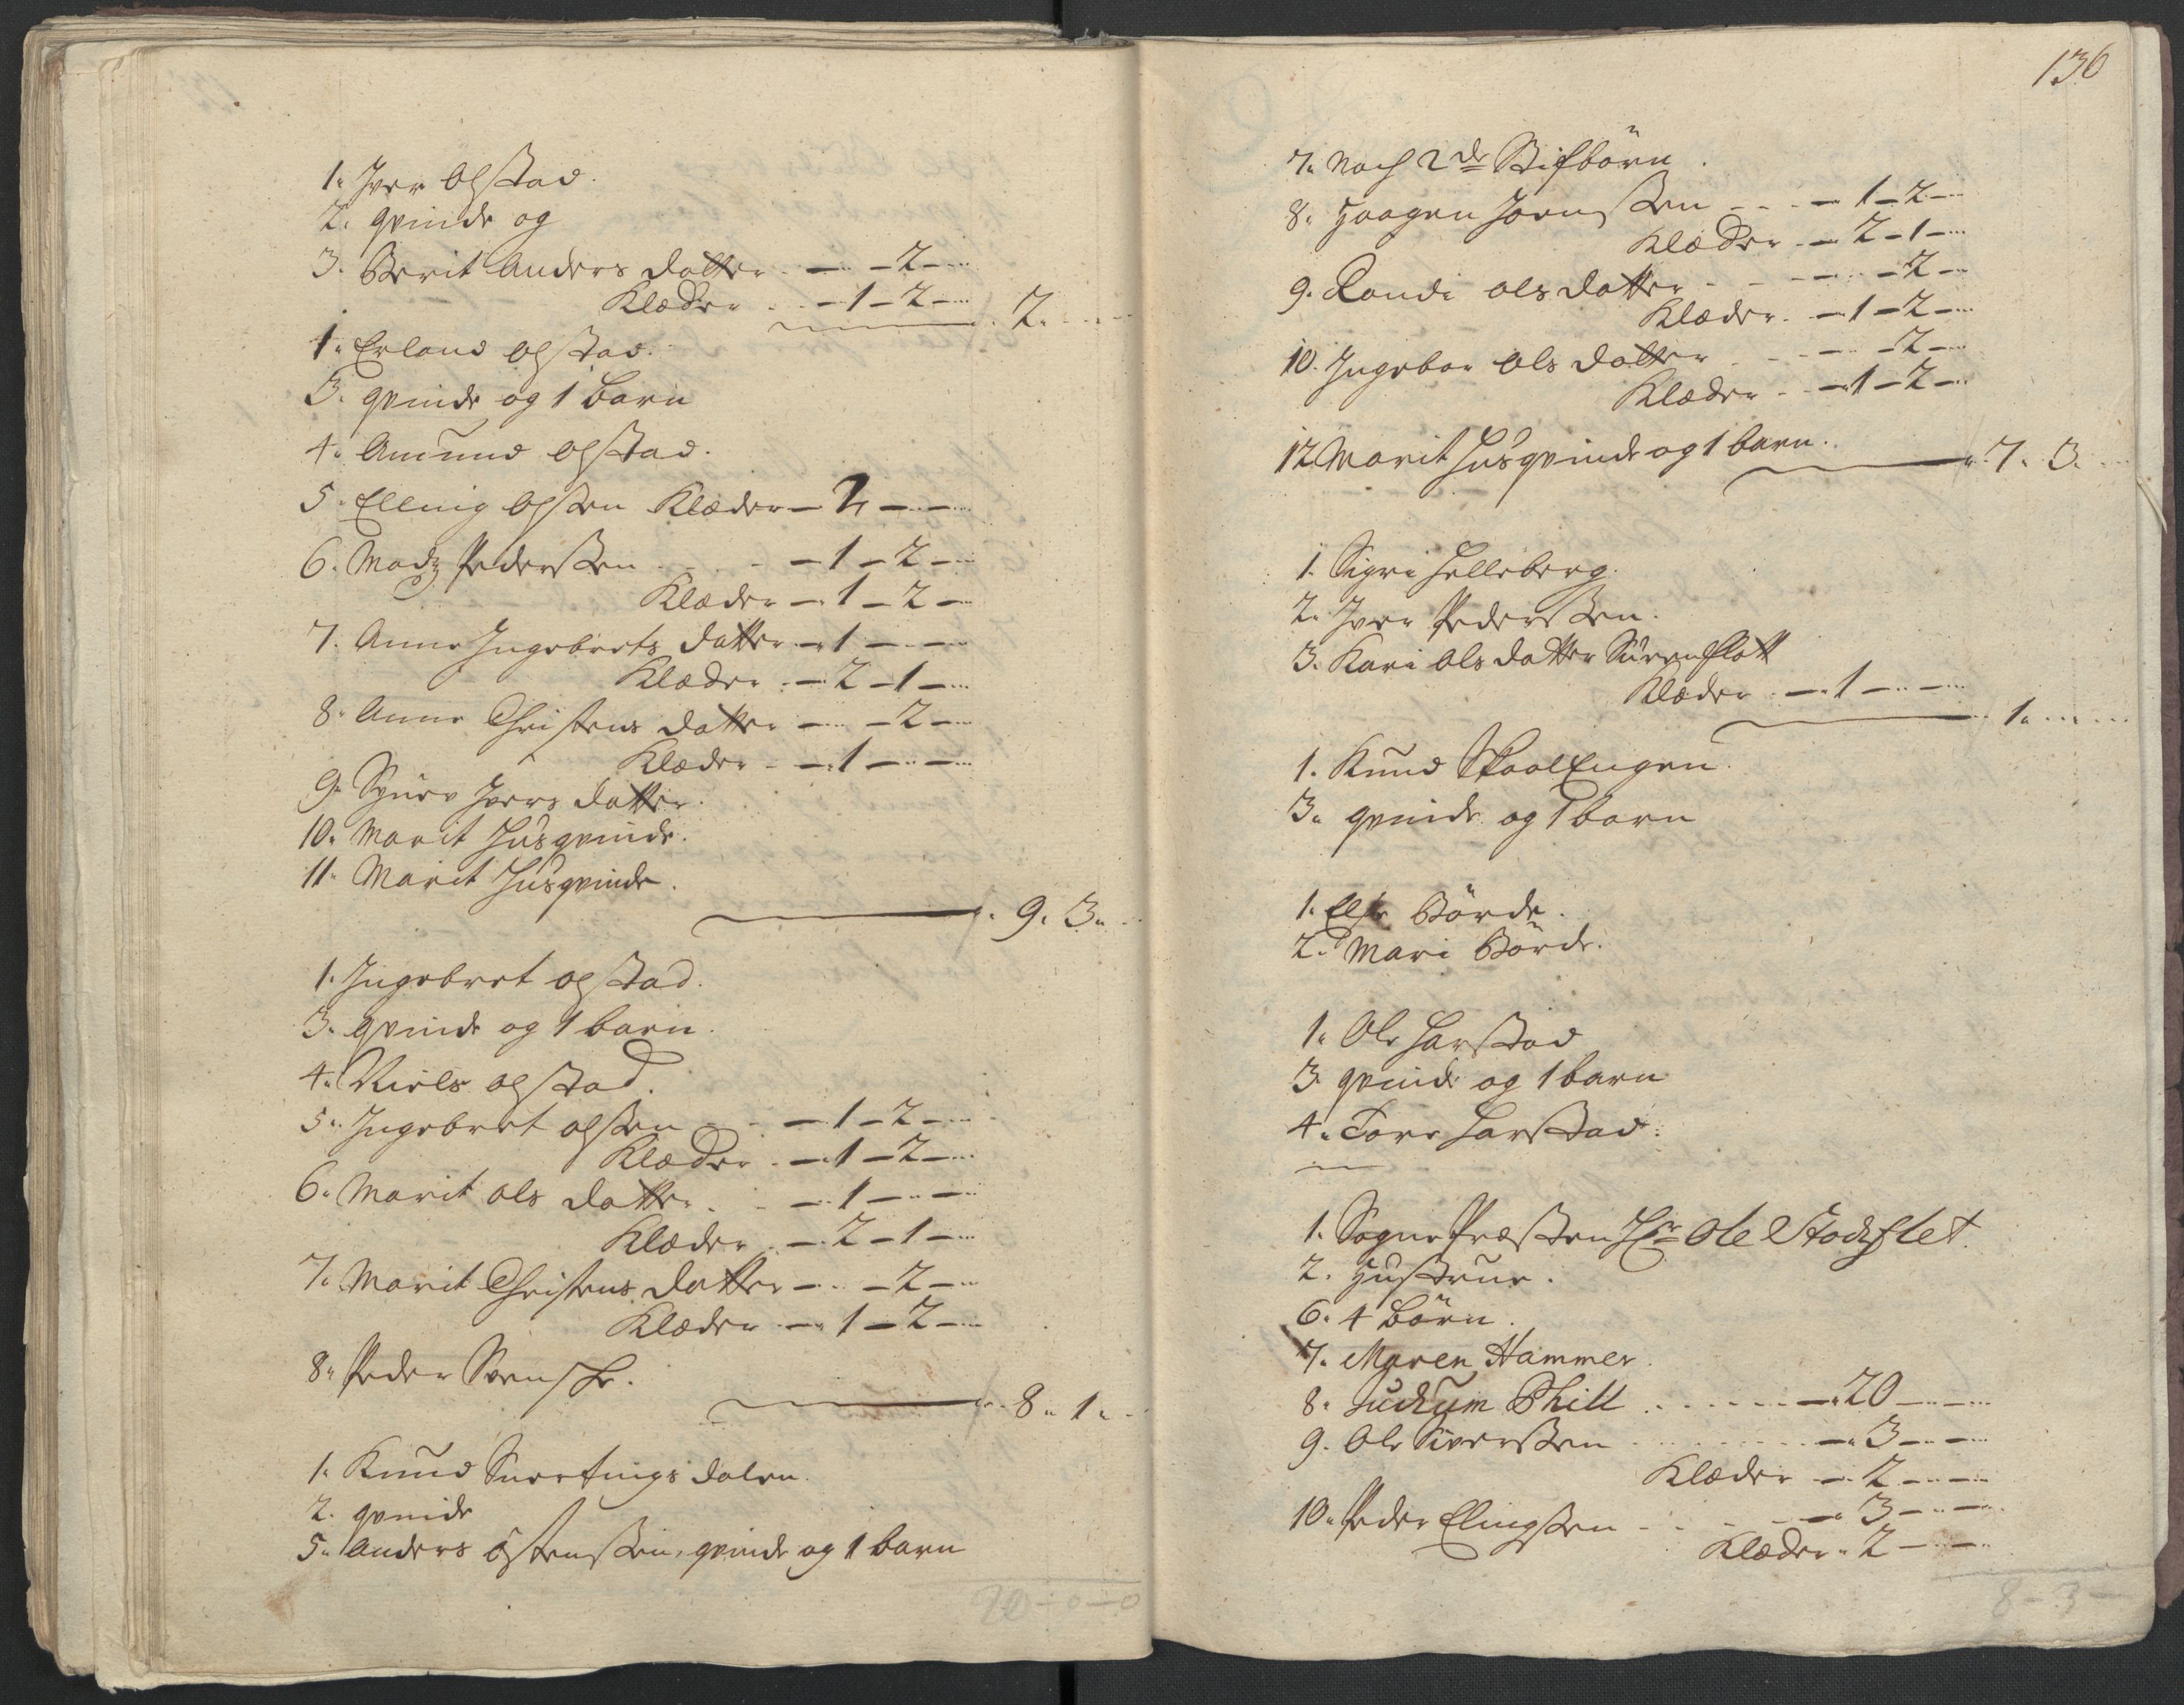 1. Iver Olstad.
2. qvinde og
3. Berit Anders datter . — — 2 —
Klæder . . — 1 — 2 —
2.
1. Erland Olstad.
3. qvinde og 1 barn
4. Amund Olstad.
5. Elling Olssen Klæder — 2 — —
6. Madz Pederssen . . . — 1 — 2 —
Klæder — 1 — 2 —
7. Anne Ingebrets datter — 1 — —
Klæder . — 2 — 1 —
8. Anne Christens datter — — 2 —
Klæder . — 1 — —
9. Ivers datter.
10. Marit Husqvinde.
11. Marit Husqvinde.
9. 3.
1. Ingebret Olstad.
3. qvinde og 1 barn.
4. Niels Olstad.
5. Ingebret Olssen . — 1 — 2 —
Klæder . — 1 — 2 —
6. Marit Ols datter . . — 1 — —
Klæder . — 2 — 1 —
7. Marit Christens datter — — 2 —
Klæder . — 1 — 2 —
8. Peder Svenske.
8. 1.
1. Knud Snertingsdalen.
2. qvinde
5. Anders Östenssen, qvinde og 1 barn
20 — 0 — 0
136
7. Noch 2de Stifbörn.
8. Haagen Joenssen . . — 1 — 2 —
Klæder . — 2 — 1 —
9. Randi Ols datter . . — — 2 —
Klæder . — 1 — 2 —
10. Ingebor Ols datter . . — — 2 —
Klæder . — 1 — 2 —
12. Marit Husqvinde og 1 barn.
7. 3.
1. Sigri Helleberg.
2. Iver Pederssen.
3. Kari Ols datter
Klæder . — 1 — —
1.
1. Knud
3. qvinde og 1 barn
1. Else Börde.
2. Mari Börde.
1. Ole Harstad
3. qvinde og 1 barn
4. Tore Harstad.
1. Sogne Præsten Hr Ole Stockflet.
2. Hustrue.
6. 4 börn.
7. Maren Hammer.
8. Phill . . . . — 20 — —
9. Ole Siverssen . . . — 3 — —
Klæder — 2 — —
10. Peder Elingssen . . . — 3 — —
Klæder . 2 — —
8 — 3 —